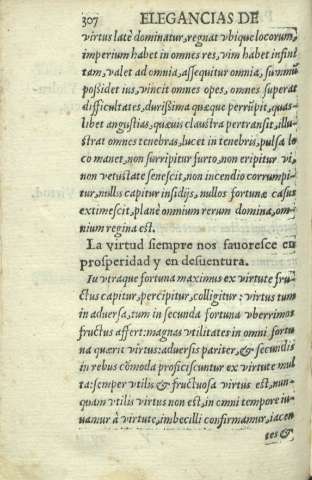 307 ELEGANCIAS DE
virtus latè dominatur, regnat vbique locorum,
imperium habet in omnes res, vim habet infini
tam, valet ad omnia, assequitur omnia, summũ
possidet ius, vincit omnes opes, omnes superat
difficultates, durissima quæque perrũpit, quas
libet angustias, quæuis claustra pertransit, illu
strat omnes tenebras, lucet in tenebris, pulsa lo
co manet, non surripitur furto, non eripitur vi,
non vetustate senescit, non incendio corrumpi-
tur, nullis capitur insidijs, nullos fortunæ casus
extimescit, planè omnium rerum domina, om-
nium regina est.
La virtud siempre nos fauoresce en
prosperidad y en desuentura.
In vtraque fortuna maximus ex virtute fru
ctus capitur, percipitur, colligitur: virtus tum
in aduersa, tum in secunda fortuna vberrimos
fructus affert: magnas vtilitates in omni fortu
na quærit virtus: aduersis pariter, & secundis
in rebus cõmoda proficiscuntur ex virtute mul
ta: semper vtilis & fructuosa virtus est, nun-
quam vtilis virtus non est, in omni tempore iu-
uamur à virtute, imbecilli confirmamur, iacen
tes &